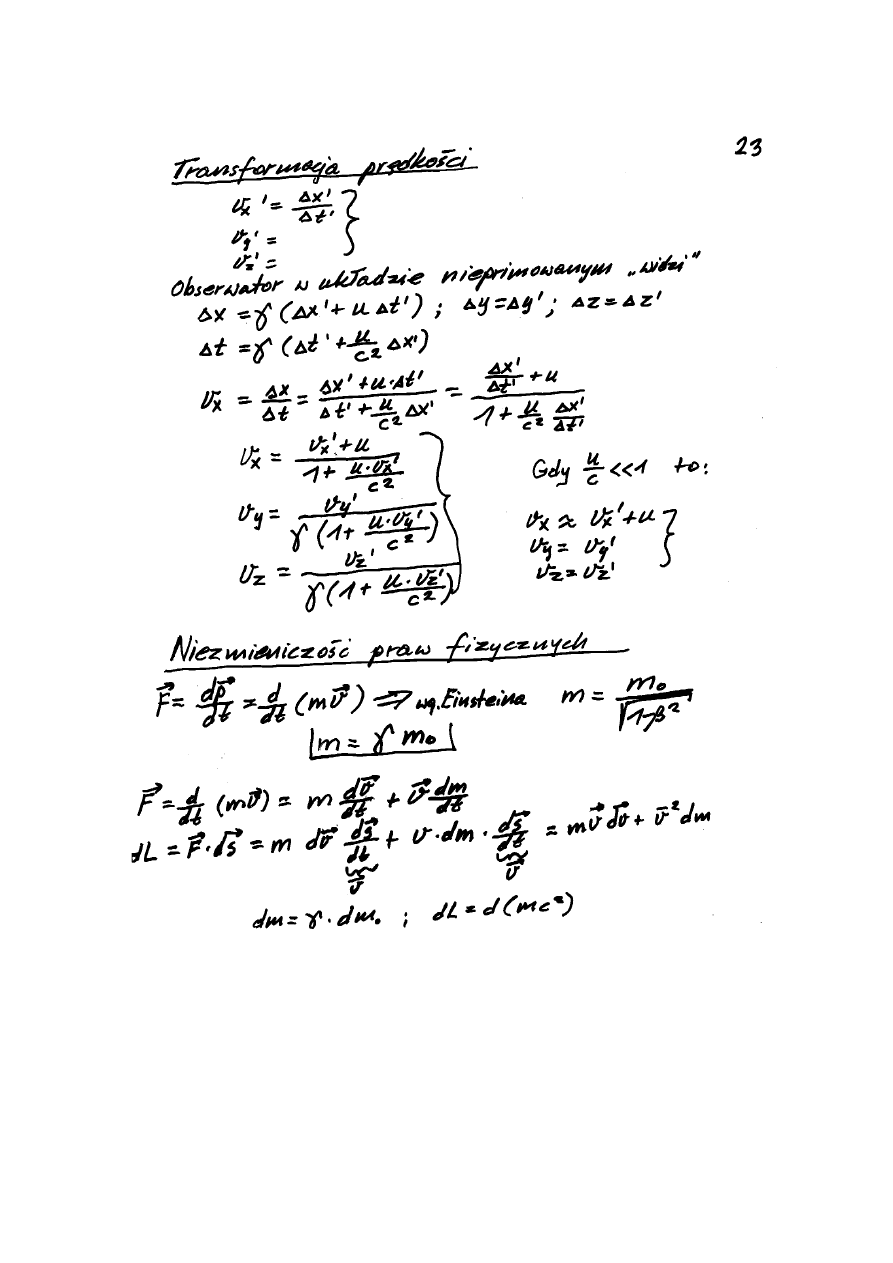 23
Transformacja prędkości
vx' = Δx'/Δt' }
vy' =
vz' =
Obserwator w układzie nieprimowanym „widzi"
Δx = γ (Δx' + u Δt') ; Δy = Δy' ; Δz = Δz'
Δt = γ (Δt' + u/c² Δx')
vx = Δx/Δt = (Δx' + u·Δt')/(Δt' + u/c² Δx') = (Δx'/Δt' + u)/(1 + u/c² Δx'/Δt')
vx = (vx' + u)/(1 + u·vx'/c²)
vy = vy'/(γ (1 + u·vy'/c²))
vz = vz'/(γ (1 + u·vz'/c²))
Gdy u/c << 1 to:
vx ≈ vx' + u
vy = vy'
vz = vz'
Niezmieniczość praw fizycznych
F⃗ = dp⃗/dt = d/dt (mv⃗) ⇒ wg. Einsteina m = m₀/√(1-β²)
m = γ m₀
F⃗ = d/dt (mv⃗) = m dv⃗/dt + v⃗ dm/dt
dL = F⃗·ds⃗ = m dv⃗ ds⃗/dt + v·dm·ds⃗/dt = mv⃗ dv⃗ + v⃗² dm
v⃗ v⃗
dm = γ·dm₀ ; dL = d(mc²)